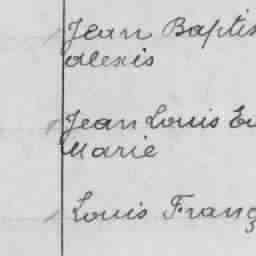 Jean Baptis
Alexis
Jean Louis Eu
Marie
Louis Franç